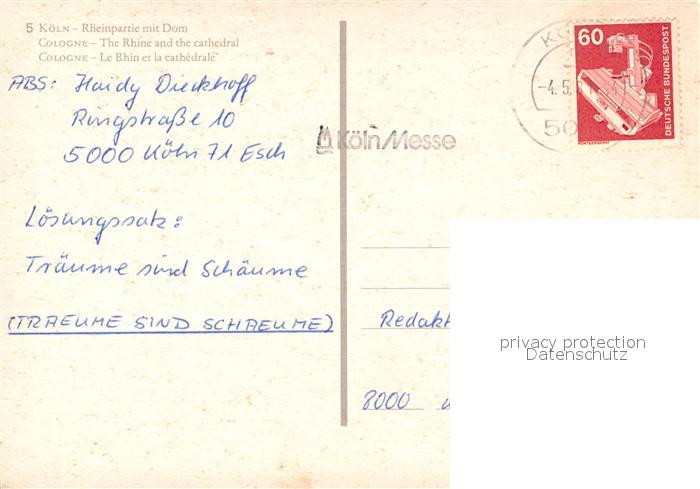 5 KÖLN – Rheinpartie mit Dom
COLOGNE – The Rhine and the cathedral
COLOGNE – Le Rhin et la cathédrale
ABS: Haidy Dieckhoff
Ringstraße 10
5000 Köln 71 Esch
Lösungssatz:
Träume sind Schäume
(TRAEUME SIND SCHAEUME)
KölnMesse
-4.5.
60
DEUTSCHE BUNDESPOST
RÖNTGENGERÄT
Redakt
8000
privacy protection
Datenschutz